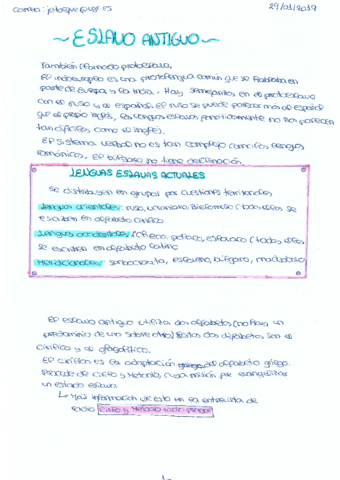 correo: @ugr.es 29/01/2019
~ ESLAVO ANTIGUO ~
También llamado protoeslavo.
El indoeuropeo es una protolengua común que se hablaba en
parte de Europa y la India. Hay semejantes en el protoeslavo
con el ruso y el español. El ruso se puede parecer más al español
que el propio inglés, las lenguas eslavas fonéticamente no nos parecen
tan difíciles como el inglés.
El sistema verbal no es tan complejo como las lenguas
románicas. El búlgaro no tiene declinación.
LENGUAS ESLAVAS ACTUALES
Se distribuyen en grupos por cuestiones territoriales
Lenguas orientales: ruso, ucraniano, bielorruso (todas ellas se
escriben en alfabeto cirílico
Lenguas occidentales: (checo, polaco, eslovaco (todas ellas
se escriben en alfabeto latino
Meridionales: serbocroata, esloveno, búlgaro, macedonio
El eslavo antiguo utiliza dos alfabetos (no había un
predominio de uno sobre otro) Estos dos alfabetos son el
cirílico y el glagolítico.
El cirílico es la adaptación del alfabeto griego.
Procede de Cirilo y Metodio, cuya misión fue evangelizar
un estado eslavo.
↳ Más información de esto en la entrevista de
radio Cirilo y Metodio radio